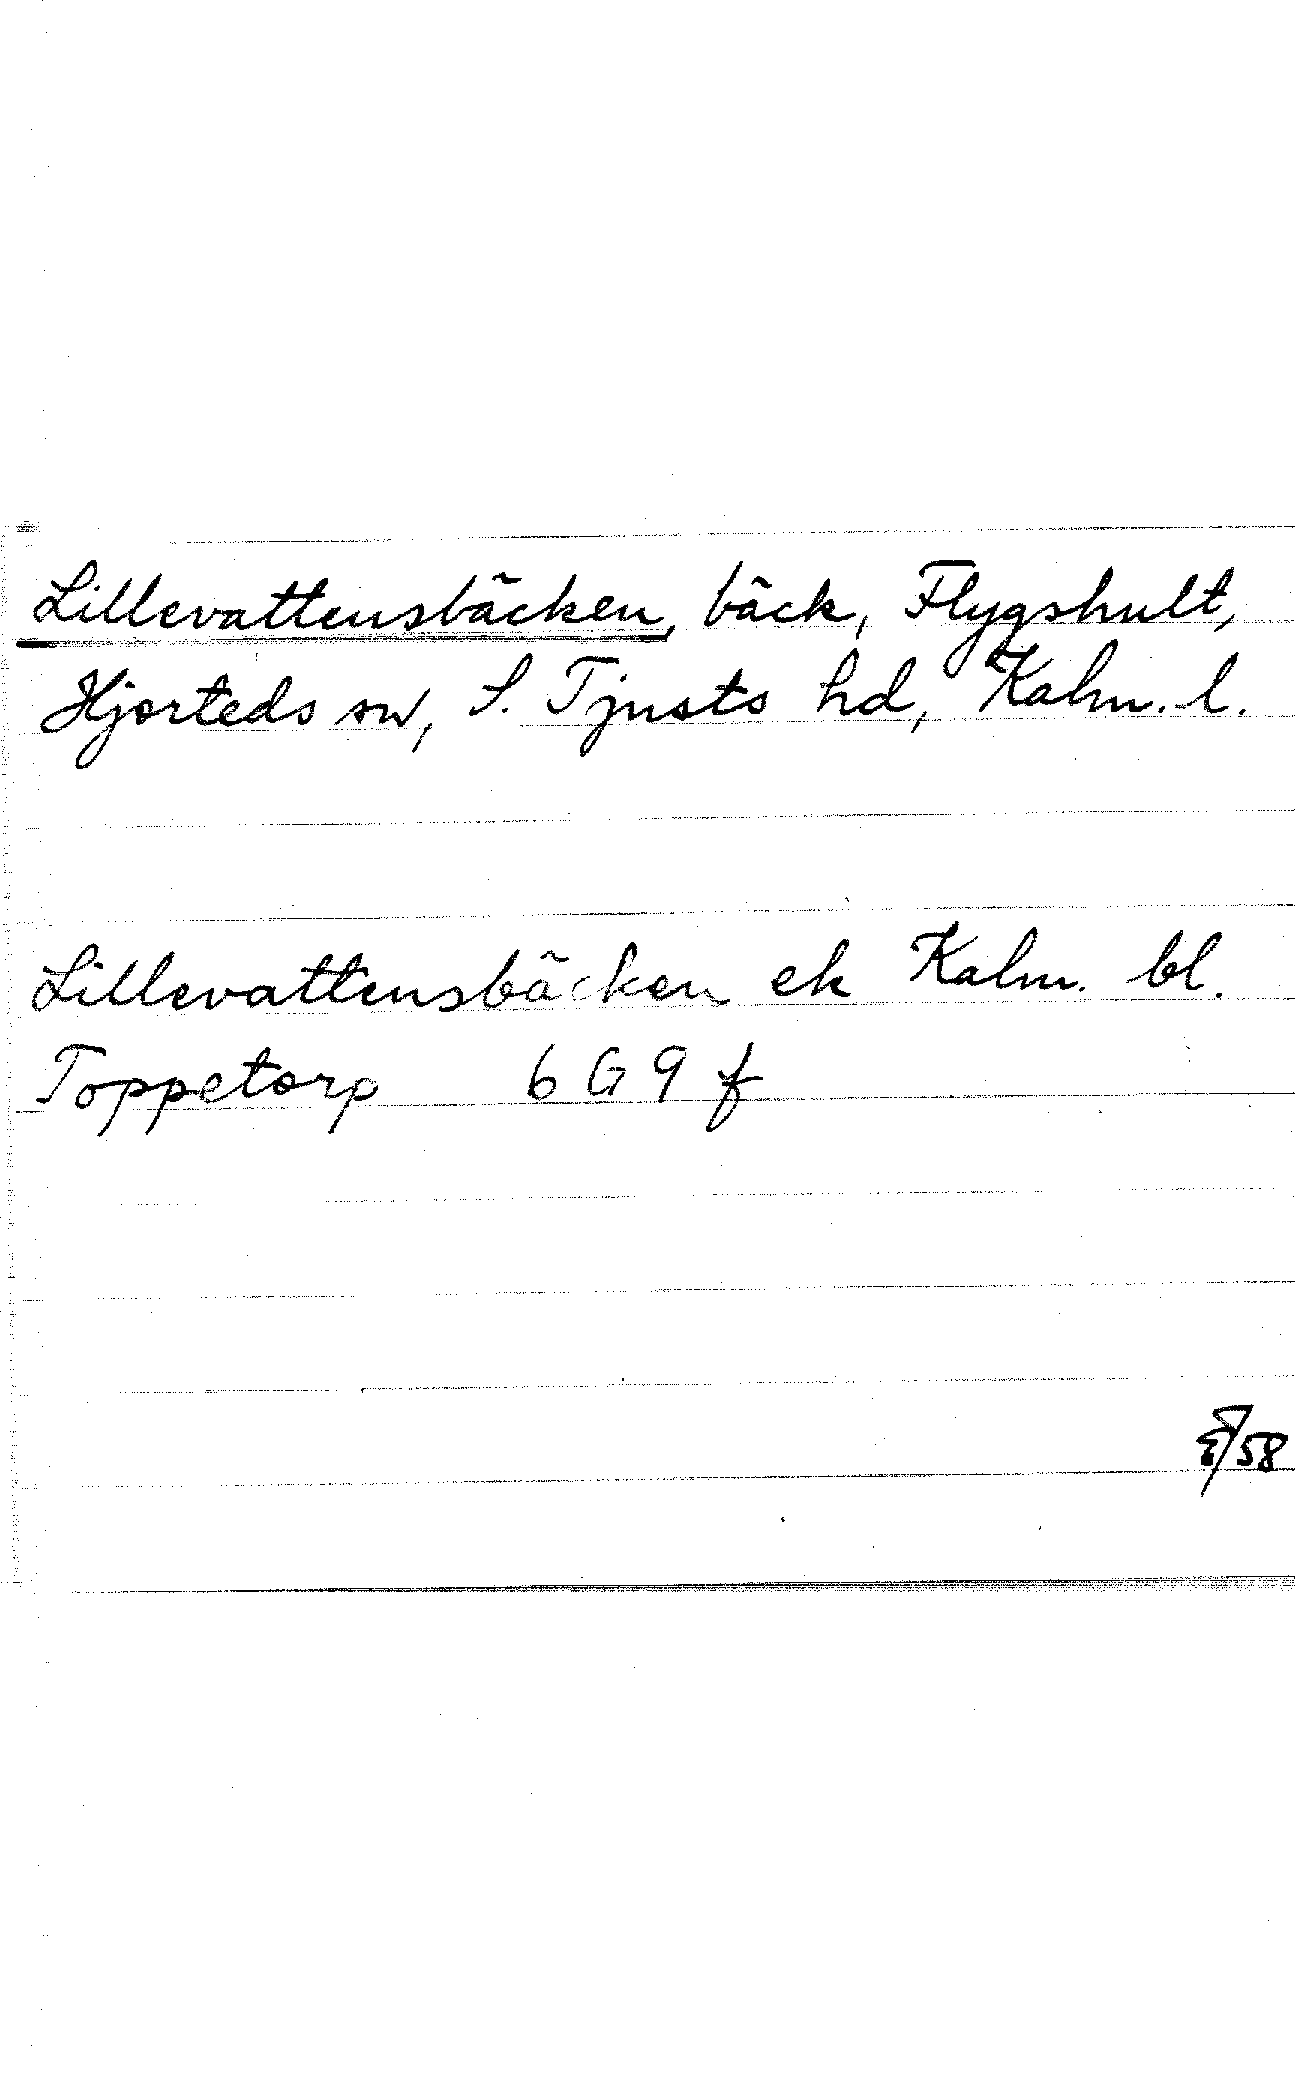 Lillevattensbäcken, bäck, Flygshult,
Hjorteds sn, S. Tjusts hd, Kalm. l.
Lillevattensbäcken ek Kalm. bl.
Toppetorp 6 G 9 f
58